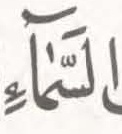 السَّمَآءِ